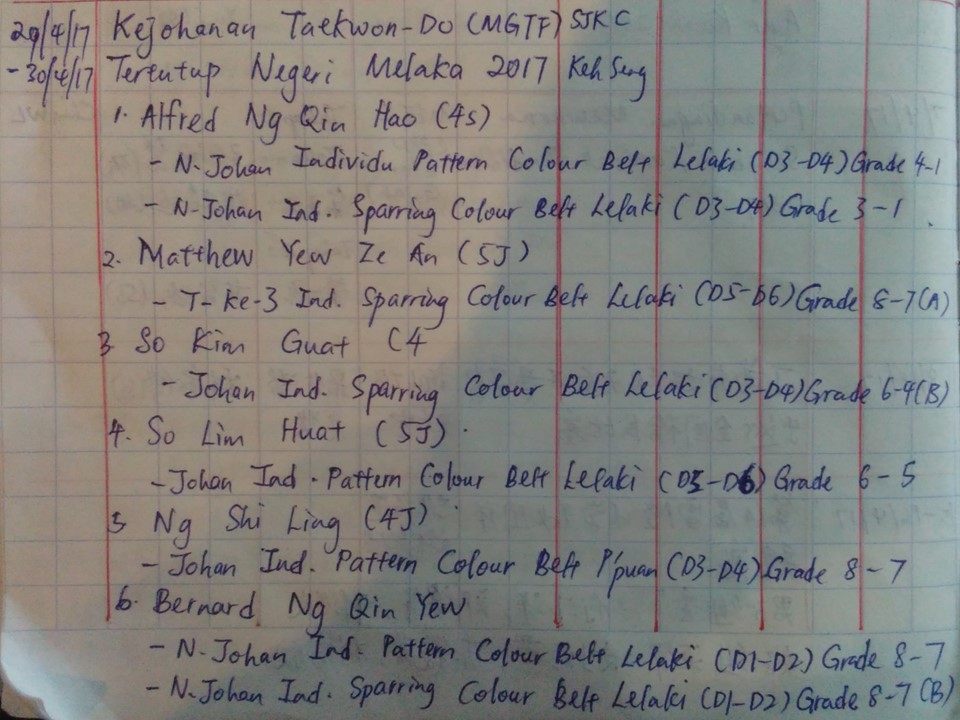 29/4/17 Kejohanan Taekwon-Do (MGTF) SJKC
-30/4/17 Tertutup Negeri Melaka 2017 Keh Seng
1. Alfred Ng Qin Hao (4S)
- N-Johan Individu Pattern Colour Belt Lelaki (D3-D4) Grade 4-1
- N-Johan Ind. Sparring Colour Belt Lelaki (D3-D4) Grade 3-1
2. Matthew Yew Ze An (5J)
- T-ke-3 Ind. Sparring Colour Belt Lelaki (D5-D6) Grade 8-7(A)
3 So Kim Guat (4
- Johan Ind. Sparring Colour Belt Lelaki (D3-D4) Grade 6-4(B)
4. So Lim Huat (5J)
- Johan Ind. Pattern Colour Belt Lelaki (D5-D6) Grade 6-5
5 Ng Shi Ling (4J)
- Johan Ind. Pattern Colour Belt P'puan (D3-D4) Grade 8-7
6. Bernard Ng Qin Yew
- N-Johan Ind. Pattern Colour Belt Lelaki (D1-D2) Grade 8-7
- N-Johan Ind. Sparring Colour Belt Lelaki (D1-D2) Grade 8-7 (B)